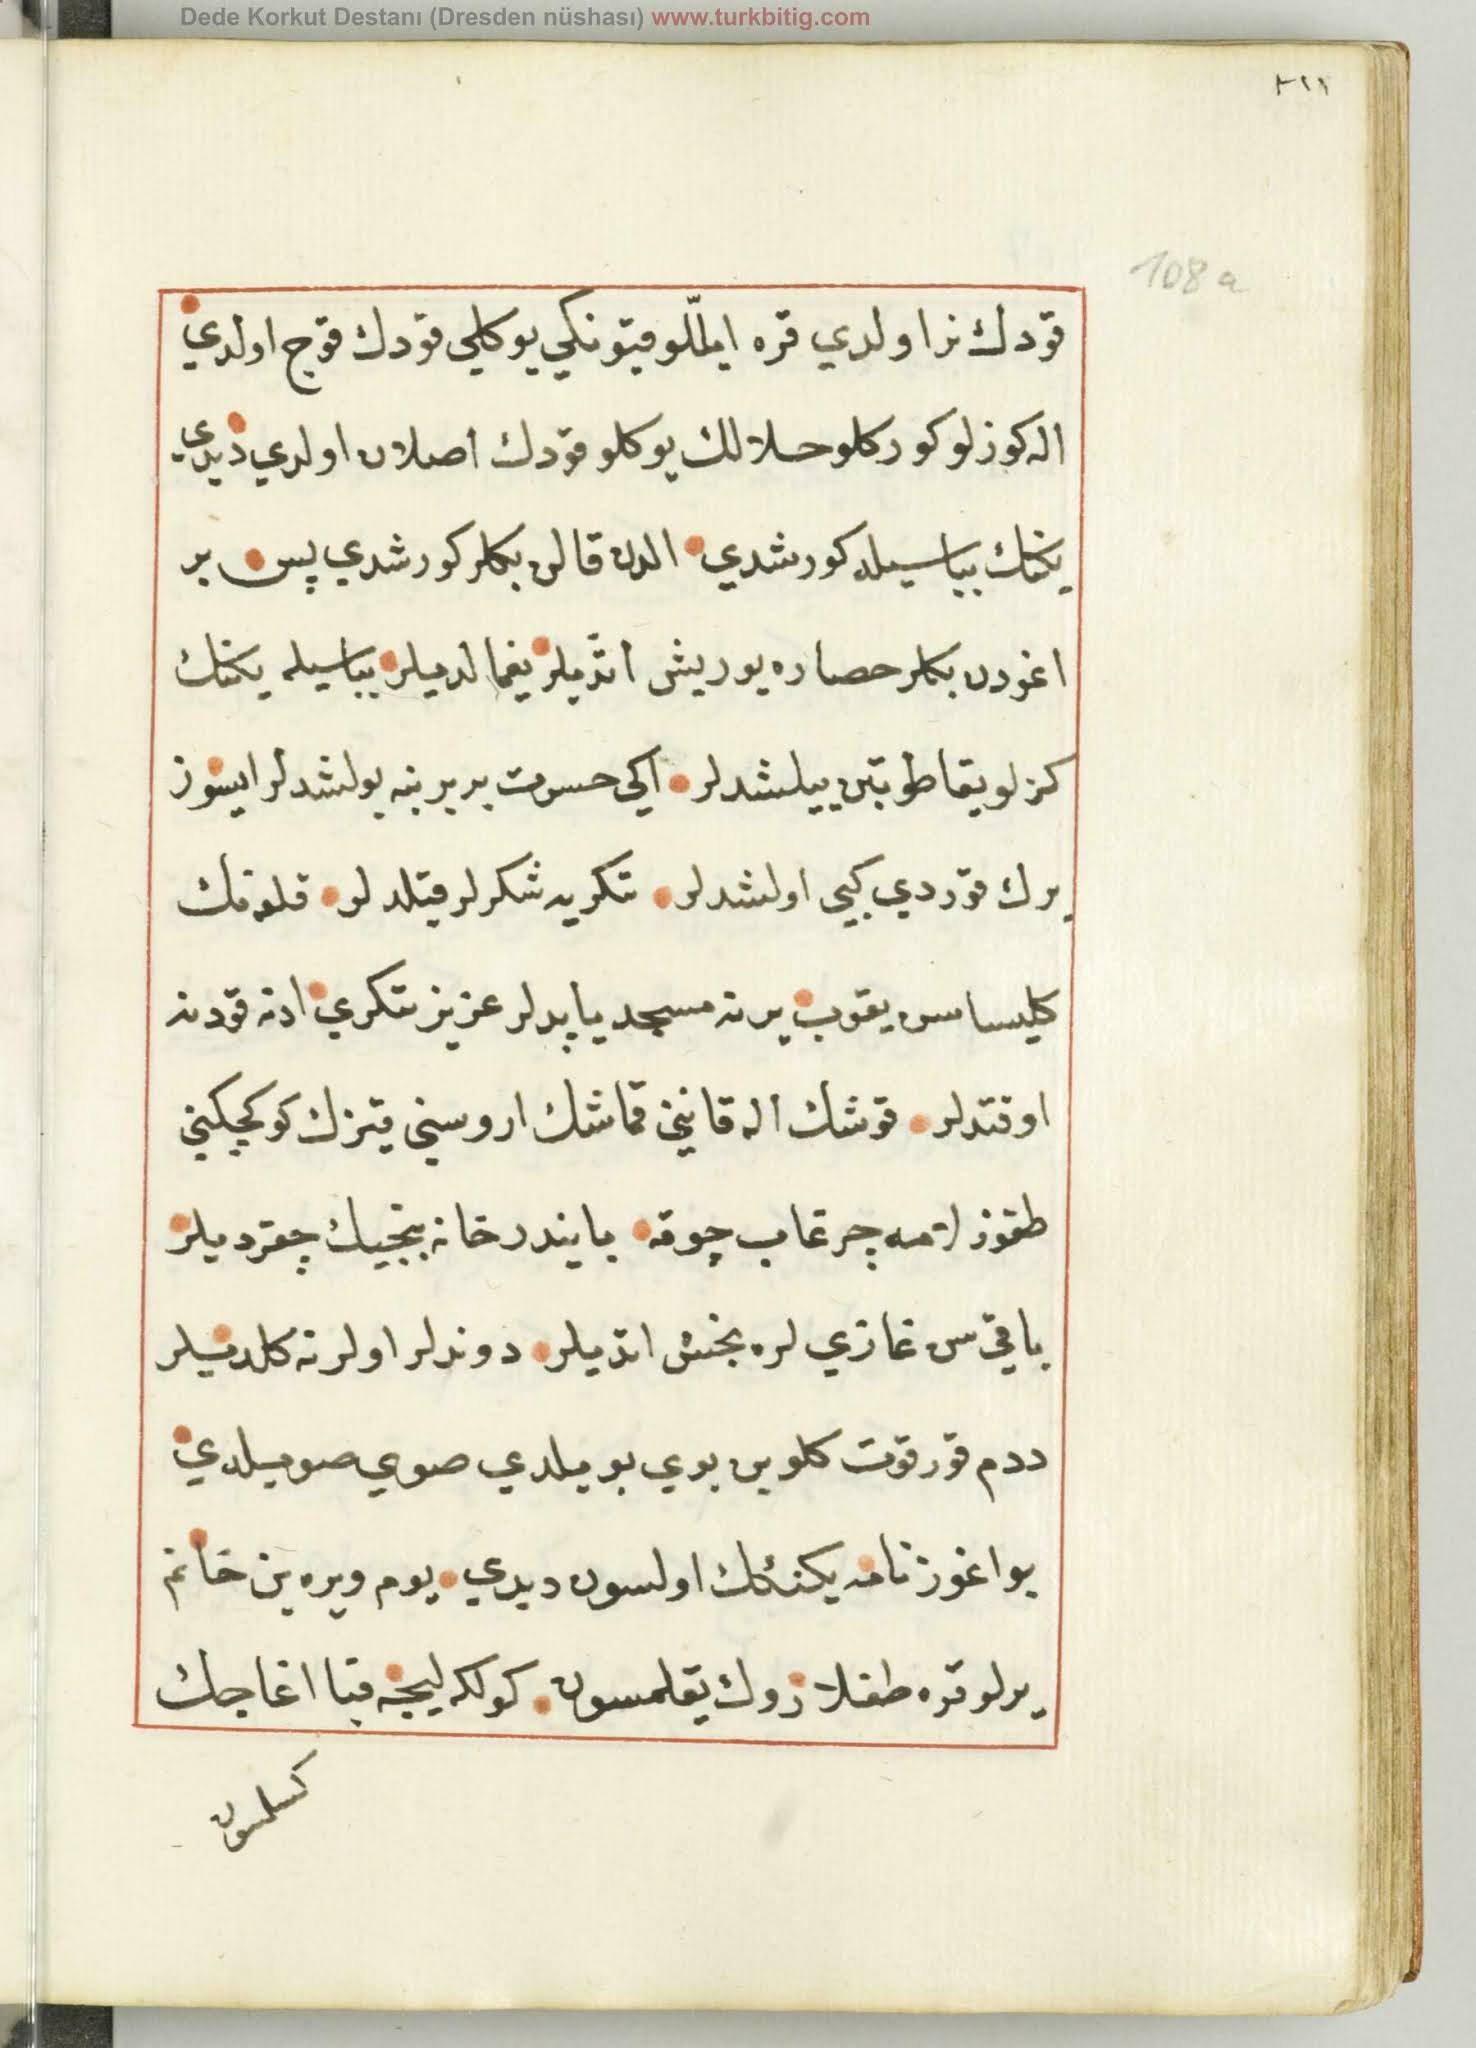 Dede Korkut Destanı (Dresden nüshası) www.turkbitig.com
٢١١
108a
قودك نر اولدي قره ايللّلو قيتونكي يوكلي قودك قوج اولدي
اله كوزلو كوركلو حلالك يوكلو قودك اصلان اولدي ديدي
يكنك بباسيله كورشدي الدن قالن بكلر كورشدي پس بر
اغوردن بكلر حصاره يوريش اتديلر يغمالديلر بباسيله يكنك
كزلو يقا طوتبن ييلشدلر ايكي حسرت بربرينه بولشدلر ايسوز
يرك قوردي كيبي اولشدلر تنكريه شكرلر قيلدلر قلعه‌نك
كليساسن يقوب يرنه مسجد ياپدلر عزيز تنكري ادنه قودنه
اوقتدلر قوشك اله قانيني قماشك اروسني قيزك كوكچكيني
طقوز لمه چرغاب چوقه بايندر خانه بنجيك چقرديلر
باقي سن غازي لره بخش اتديلر دوندلر اولرنه كلديلر
ددم قورقوت كلوبن بوي بويلدي صوي صويلدي
بو اغوزنامه يكنكك اولسون ديدي يوم ويره ين خانم
يرلو قره طاغلاروك يقلمسون كولكه ليجه قبا اغاجك
كسلمسون